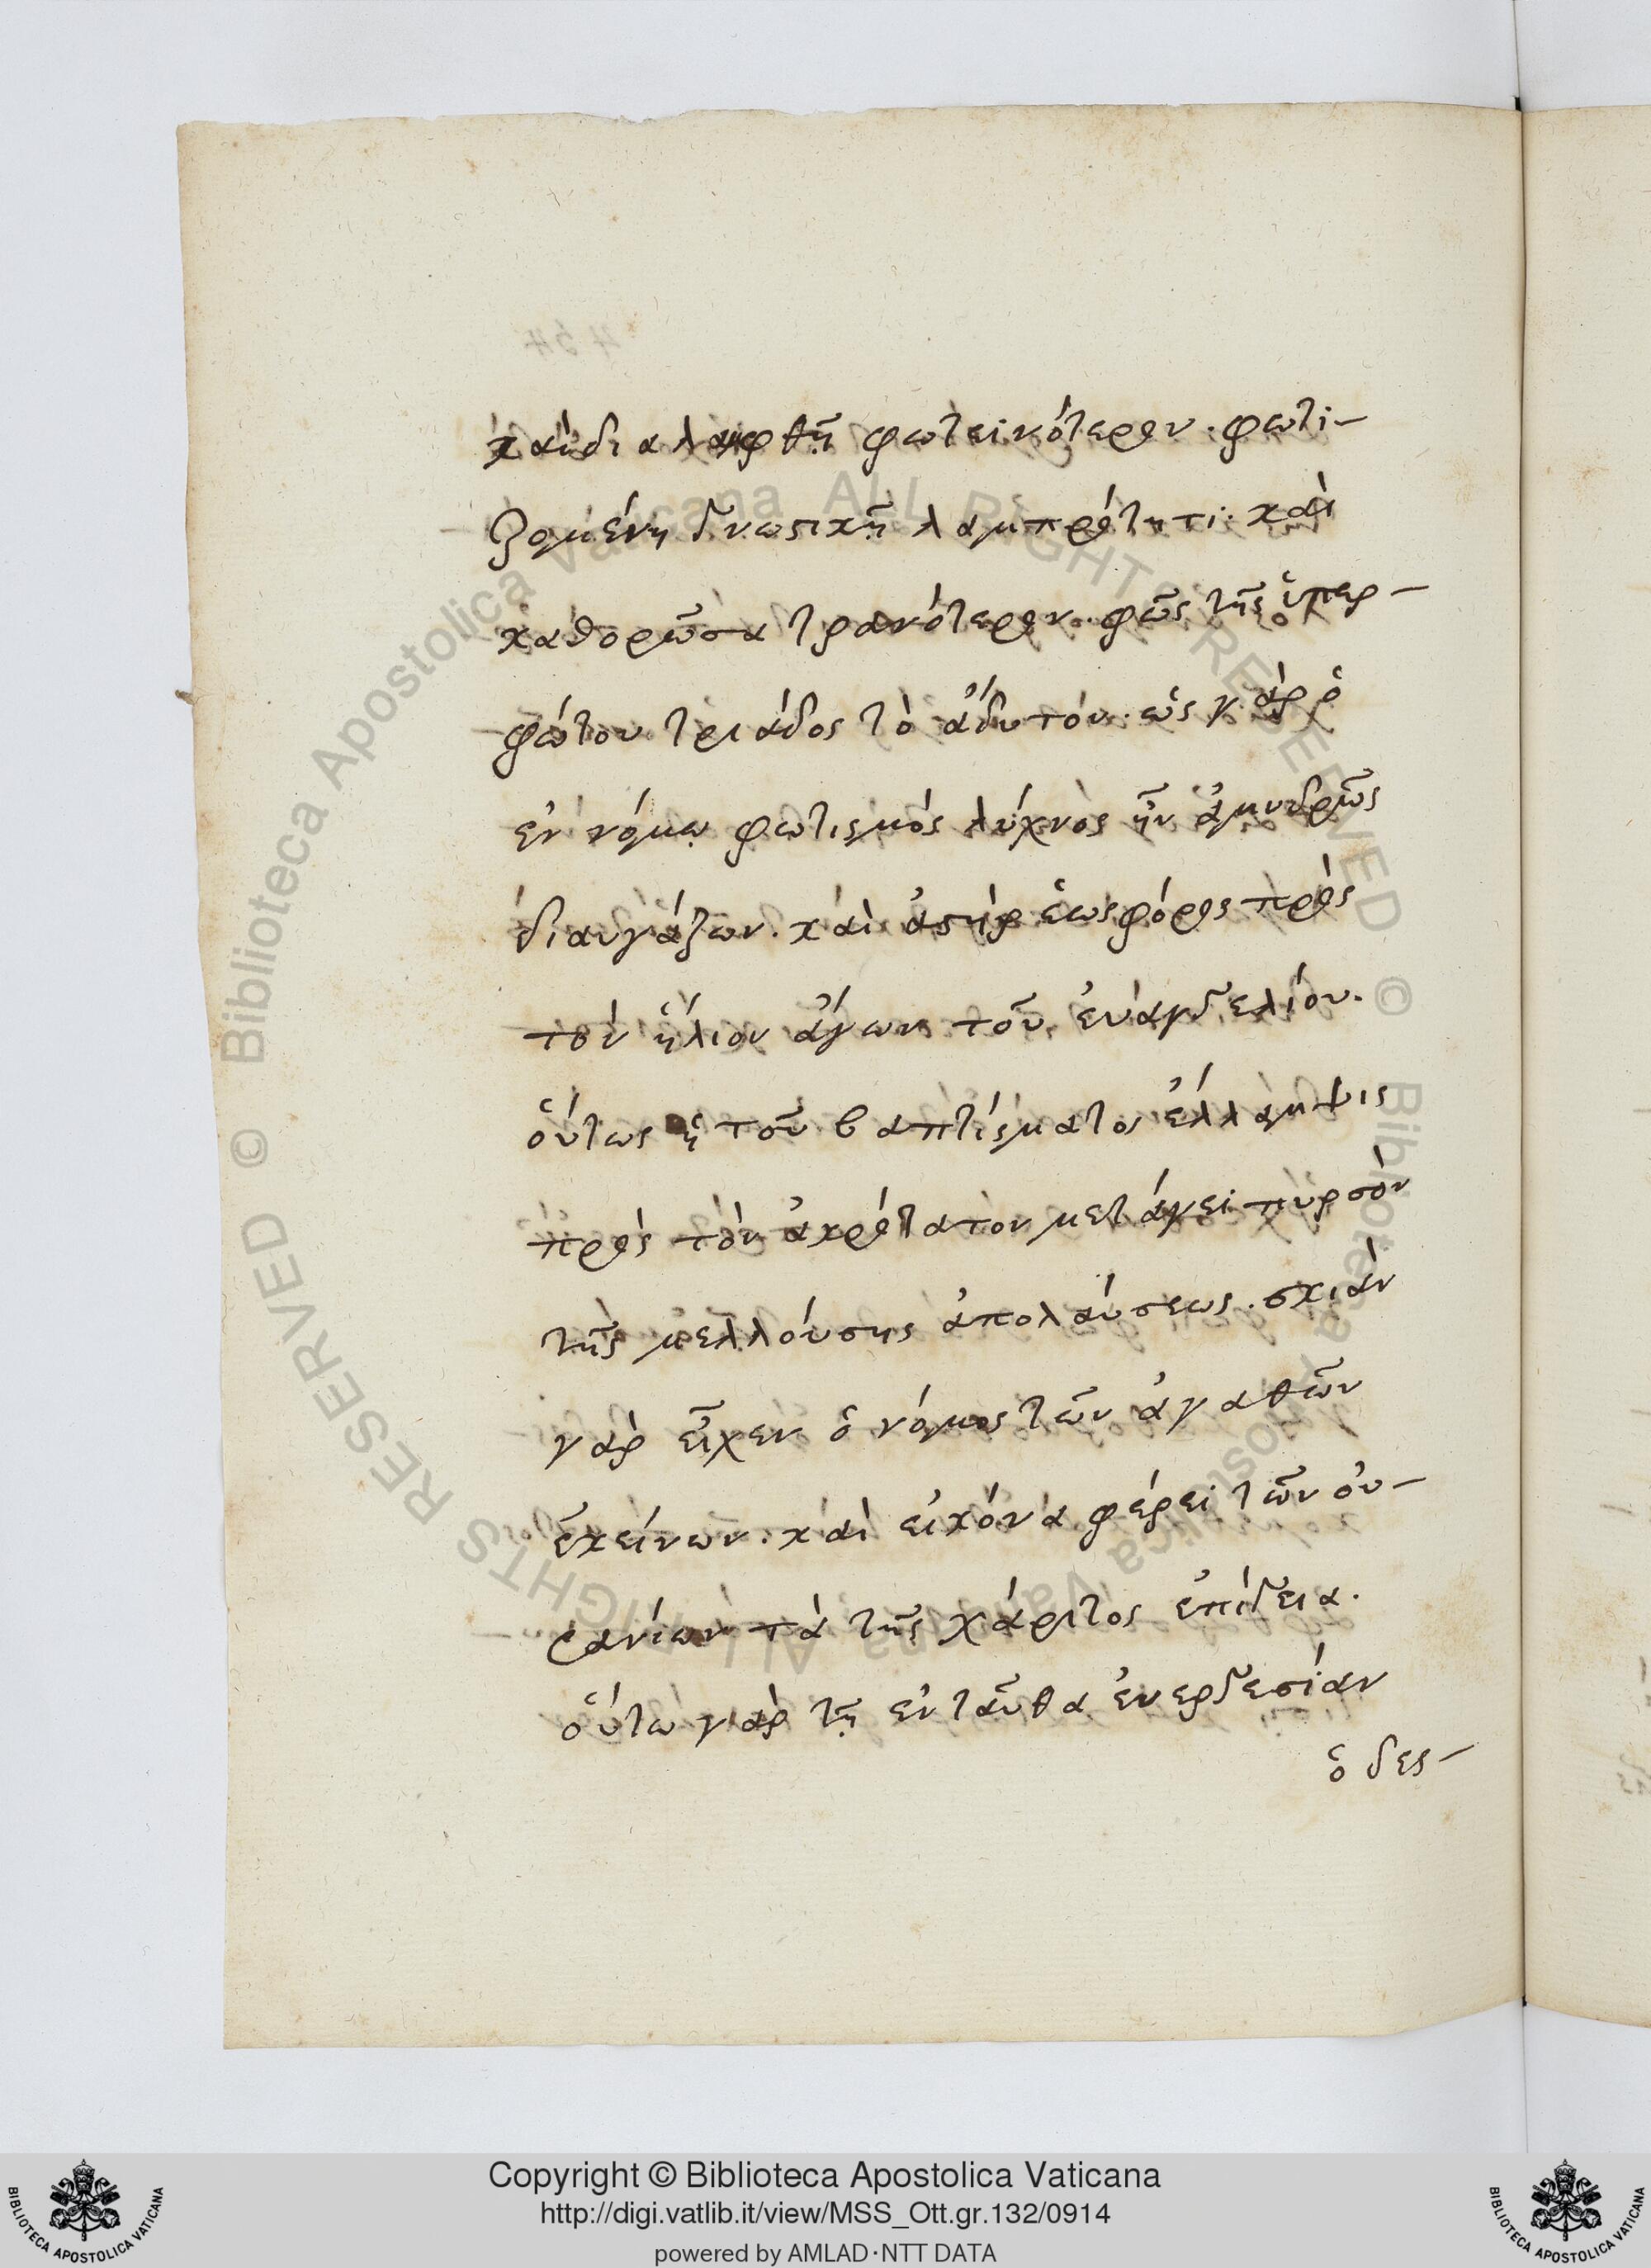 καὶ διαλαμφθῇ φωτεινότερον. φωτι-
ζομένη γνωστικῇ λαμπρότητι· καὶ
καθορῶσα τρανότερον. φῶς τῆς ὑπερ-
φώτου τριάδος τὸ ἄδυτον. ὡς γὰρ ὁ
ἐν νόμῳ φωτισμὸς λύχνος ἦν ἀμυδρῶς
διαυγάζων. καὶ ἀστὴρ ἑωσφόρος πρὸς
τὸν ἥλιον ἄγων τοῦ ἐυαγγελίου.
ὅυτως ἡ τοῦ βαπτίσματος ἔλλαμψις
πρὸς τὸν ἀκρότατον μετάγει πυρσὸν
τῆς μελλόυσης ἀπολάυσεως. σκιὰν
γὰρ εἶχεν ὁ νόμος τῶν ἀγαθῶν
ἐκείνων. καὶ εἰκόνα φέρει τῶν ὀυ-
ρανίων τὰ τῆς χάριτος ἐπίγεια.
ὅυτω γὰρ τῇ ἐνταῦθα ἐυεργεσίαν
ὁ δεσ-
Copyright © Biblioteca Apostolica Vaticana
http://digi.vatlib.it/view/MSS_Ott.gr.132/0914
powered by AMLAD·NTT DATA